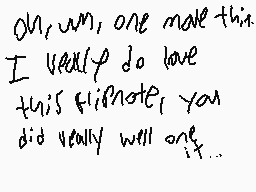 Oh, um, one more thin
I really do love
this flipnote, you
did really well one
it...